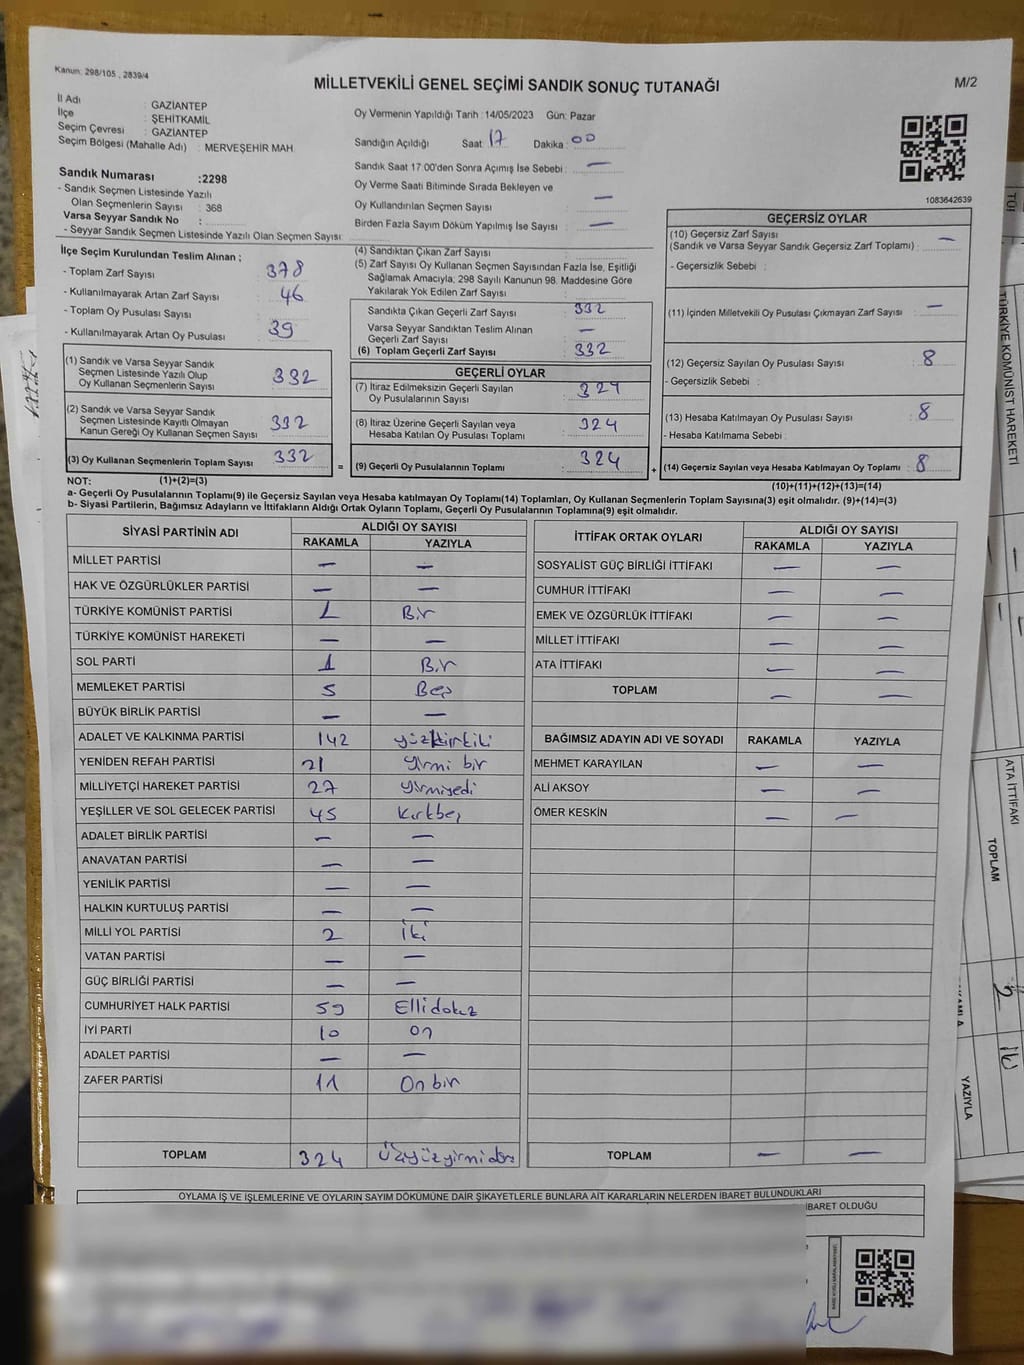 Kanun: 298/105 , 2839/4
MİLLETVEKİLİ GENEL SEÇİMİ SANDIK SONUÇ TUTANAĞI
M/2
İl Adı : GAZİANTEP
İlçe : ŞEHİTKAMİL
Seçim Çevresi : GAZİANTEP
Seçim Bölgesi (Mahalle Adı) : MERVEŞEHİR MAH
Sandık Numarası :2298
- Sandık Seçmen Listesinde Yazılı
Olan Seçmenlerin Sayısı : 368
Varsa Seyyar Sandık No :
- Seyyar Sandık Seçmen Listesinde Yazılı Olan Seçmen Sayısı:
Oy Vermenin Yapıldığı Tarih :14/05/2023 Gün: Pazar
Sandığın Açıldığı Saat 17 Dakika : 00
Sandık Saat 17:00'den Sonra Açımış İse Sebebi : —
Oy Verme Saati Bitiminde Sırada Bekleyen ve
Oy Kullandırılan Seçmen Sayısı : —
Birden Fazla Sayım Döküm Yapılmış İse Sayısı : —
1083642639
İlçe Seçim Kurulundan Teslim Alınan ;
- Toplam Zarf Sayısı : 378
- Kullanılmayarak Artan Zarf Sayısı : 46
- Toplam Oy Pusulası Sayısı :
- Kullanılmayarak Artan Oy Pusulası : 39
(1) Sandık ve Varsa Seyyar Sandık
Seçmen Listesinde Yazılı Olup
Oy Kullanan Seçmenlerin Sayısı : 332
(2) Sandık ve Varsa Seyyar Sandık
Seçmen Listesinde Kayıtlı Olmayan
Kanun Gereği Oy Kullanan Seçmen Sayısı : 332
(3) Oy Kullanan Seçmenlerin Toplam Sayısı : 332
(4) Sandıktan Çıkan Zarf Sayısı :
(5) Zarf Sayısı Oy Kullanan Seçmen Sayısından Fazla İse, Eşitliği
Sağlamak Amacıyla, 298 Sayılı Kanunun 98. Maddesine Göre
Yakılarak Yok Edilen Zarf Sayısı :
Sandıkta Çıkan Geçerli Zarf Sayısı : 332
Varsa Seyyar Sandıktan Teslim Alınan
Geçerli Zarf Sayısı : —
(6) Toplam Geçerli Zarf Sayısı : 332
GEÇERLİ OYLAR
(7) İtiraz Edilmeksizin Geçerli Sayılan
Oy Pusulalarının Sayısı : 324
(8) İtiraz Üzerine Geçerli Sayılan veya
Hesaba Katılan Oy Pusulası Toplamı : 324
= (9) Geçerli Oy Pusulalarının Toplamı : 324
GEÇERSİZ OYLAR
(10) Geçersiz Zarf Sayısı
(Sandık ve Varsa Seyyar Sandık Geçersiz Zarf Toplamı) : —
- Geçersizlik Sebebi :
(11) İçinden Milletvekili Oy Pusulası Çıkmayan Zarf Sayısı : —
(12) Geçersiz Sayılan Oy Pusulası Sayısı : 8
- Geçersizlik Sebebi :
(13) Hesaba Katılmayan Oy Pusulası Sayısı : 8
- Hesaba Katılmama Sebebi :
+ (14) Geçersiz Sayılan veya Hesaba Katılmayan Oy Toplamı : 8
NOT: (1)+(2)=(3)
(10)+(11)+(12)+(13)=(14)
a- Geçerli Oy Pusulalarının Toplamı(9) ile Geçersiz Sayılan veya Hesaba katılmayan Oy Toplamı(14) Toplamları, Oy Kullanan Seçmenlerin Toplam Sayısına(3) eşit olmalıdır. (9)+(14)=(3)
b- Siyasi Partilerin, Bağımsız Adayların ve İttifakların Aldığı Ortak Oyların Toplamı, Geçerli Oy Pusulalarının Toplamına(9) eşit olmalıdır.
SİYASİ PARTİNİN ADI ALDIĞI OY SAYISI
RAKAMLA YAZIYLA
MİLLET PARTİSİ — —
HAK VE ÖZGÜRLÜKLER PARTİSİ — —
TÜRKİYE KOMÜNİST PARTİSİ 1 Bir
TÜRKİYE KOMÜNİST HAREKETİ — —
SOL PARTİ 1 Bir
MEMLEKET PARTİSİ 5 Beş
BÜYÜK BİRLİK PARTİSİ — —
ADALET VE KALKINMA PARTİSİ 142 yüzkırkiki
YENİDEN REFAH PARTİSİ 21 Yirmi bir
MİLLİYETÇİ HAREKET PARTİSİ 27 Yirmiyedi
YEŞİLLER VE SOL GELECEK PARTİSİ 45 Kırkbeş
ADALET BİRLİK PARTİSİ — —
ANAVATAN PARTİSİ — —
YENİLİK PARTİSİ — —
HALKIN KURTULUŞ PARTİSİ — —
MİLLİ YOL PARTİSİ 2 İki
VATAN PARTİSİ — —
GÜÇ BİRLİĞİ PARTİSİ — —
CUMHURİYET HALK PARTİSİ 59 Ellidokuz
İYİ PARTİ 10 on
ADALET PARTİSİ — —
ZAFER PARTİSİ 11 On bir
TOPLAM 324
İTTİFAK ORTAK OYLARI ALDIĞI OY SAYISI
RAKAMLA YAZIYLA
SOSYALİST GÜÇ BİRLİĞİ İTTİFAKI — —
CUMHUR İTTİFAKI — —
EMEK VE ÖZGÜRLÜK İTTİFAKI — —
MİLLET İTTİFAKI — —
ATA İTTİFAKI — —
TOPLAM — —
BAĞIMSIZ ADAYIN ADI VE SOYADI RAKAMLA YAZIYLA
MEHMET KARAYILAN — —
ALİ AKSOY — —
ÖMER KESKİN — —
TOPLAM — —
OYLAMA İŞ VE İŞLEMLERİNE VE OYLARIN SAYIM DÖKÜMÜNE DAİR ŞİKAYETLERLE BUNLARA AİT KARARLARIN NELERDEN İBARET BULUNDUKLARI
İBARET OLDUĞU
TÜRKİYE KOMÜNİST HAREKETİ
ATA İTTİFAKI
TOPLAM
2 iki
YAZIYLA